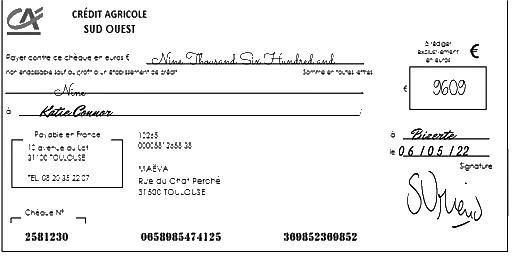 CRÉDIT AGRICOLE
SUD OUEST
Payer contre ce chèque en euros € Nine Thousand Six Hundred and
non endossable sauf au profit d'un établissement de crédit Somme en toutes lettres
Nine
à Katie Connor
à rédiger
exclusivement
en euros
€
€ 9609
Payable en France
10 avenue du Lot
31100 TOULOUSE
TEL. 08 20 35 22 07
10265
MAËVA
Rue du Chat Perché
31500 TOULOUSE
à Bizerte
le 06/05/22
Signature
Chèque N°
2581230 0658985474125 369852369852